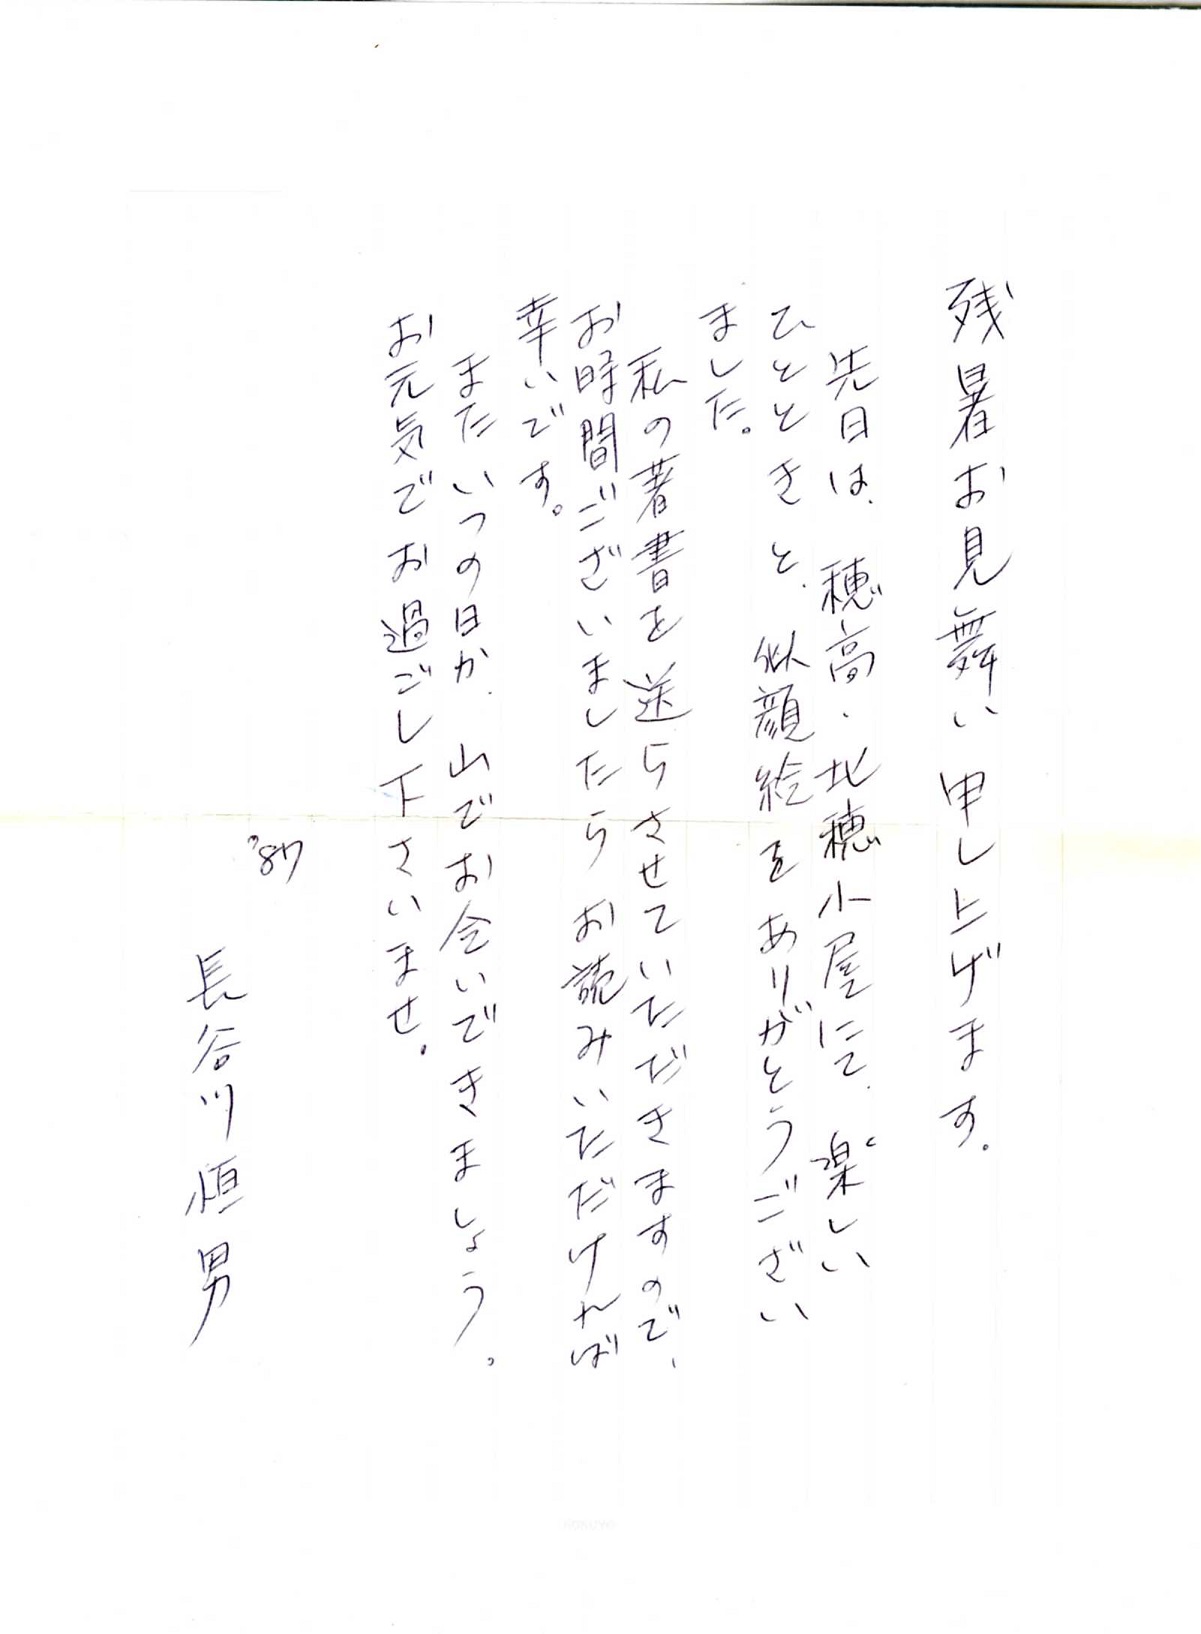 残暑お見舞い申し上げます。
先日は、穂高・北穂小屋にて、楽しい
ひとときと、似顔絵をありがとうござい
ました。
私の著書を送らさせていただきますので、
お時間ございましたらお読みいただければ
幸いです。
またいつの日か、山でお会いできましょう。
お元気でお過ごし下さいませ。
'87
長谷川恒男
KOKUYO